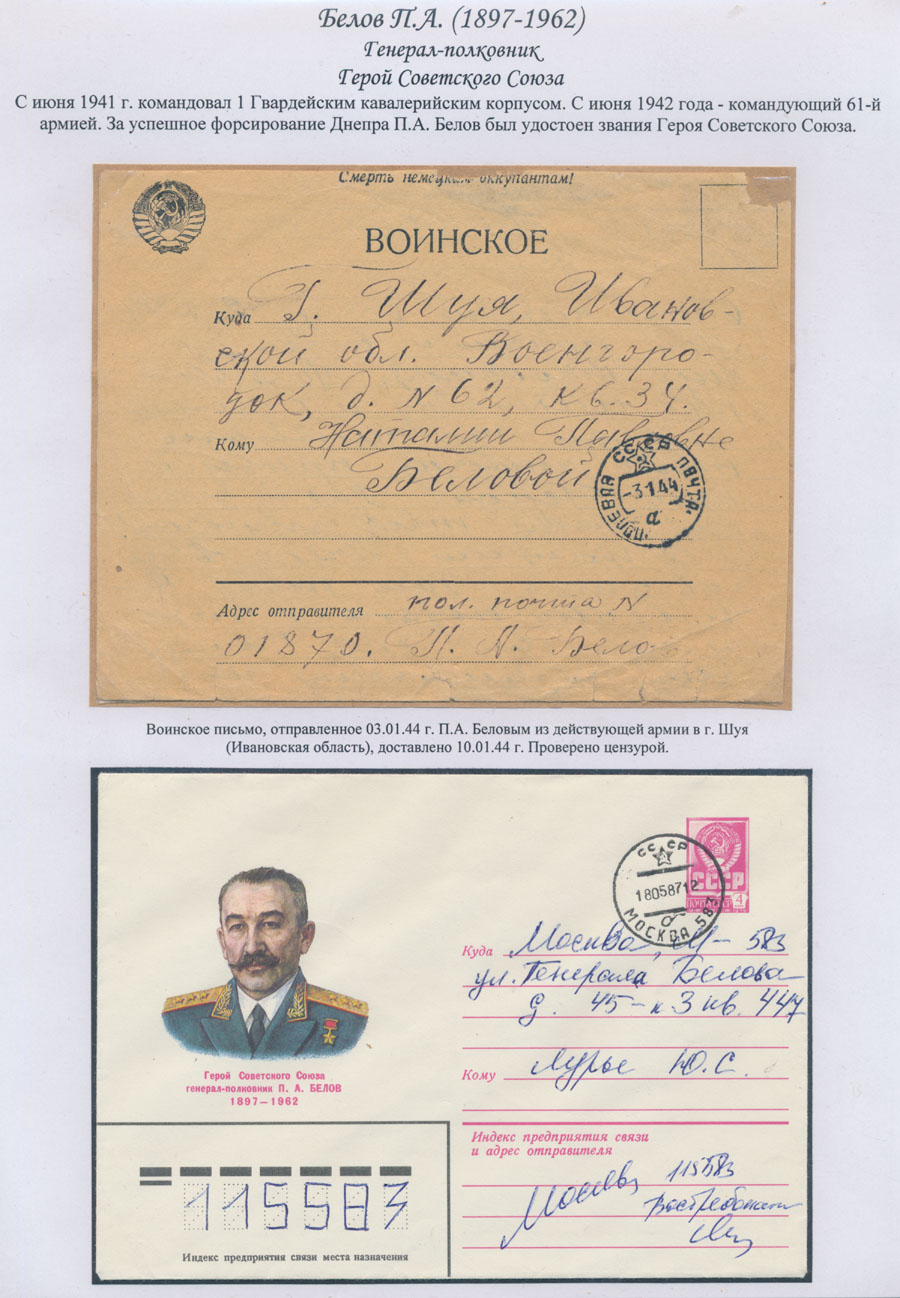 Белов П.А. (1897-1962)
Генерал-полковник
Герой Советского Союза
С июня 1941 г. командовал 1 Гвардейским кавалерийским корпусом. С июня 1942 года - командующий 61-й
армией. За успешное форсирование Днепра П.А. Белов был удостоен звания Героя Советского Союза.
Смерть немецким оккупантам!
ВОИНСКОЕ
Куда Г. Шуя, Иванов-
ской обл. Военгоро-
док, д. N 62, кв. 34.
Кому Наталии Павловне
Беловой
СССР
ПОЛЕВАЯ ПОЧТА
-3 1 44
а
Адрес отправителя пол. почта N
01870. П. А. Бело
Воинское письмо, отправленное 03.01.44 г. П.А. Беловым из действующей армии в г. Шуя
(Ивановская область), доставлено 10.01.44 г. Проверено цензурой.
СССР
18058712
МОСКВА 583
а
СССР
4
Куда Москва, М-583
ул. Генерала Белова
д. 45-к3 кв. 447
Кому Лурье Ю.С.
Герой Советского Союза
генерал-полковник П. А. БЕЛОВ
1897—1962
Индекс предприятия связи
и адрес отправителя
Москва 115583
Востребования
115583
Индекс предприятия связи места назначения